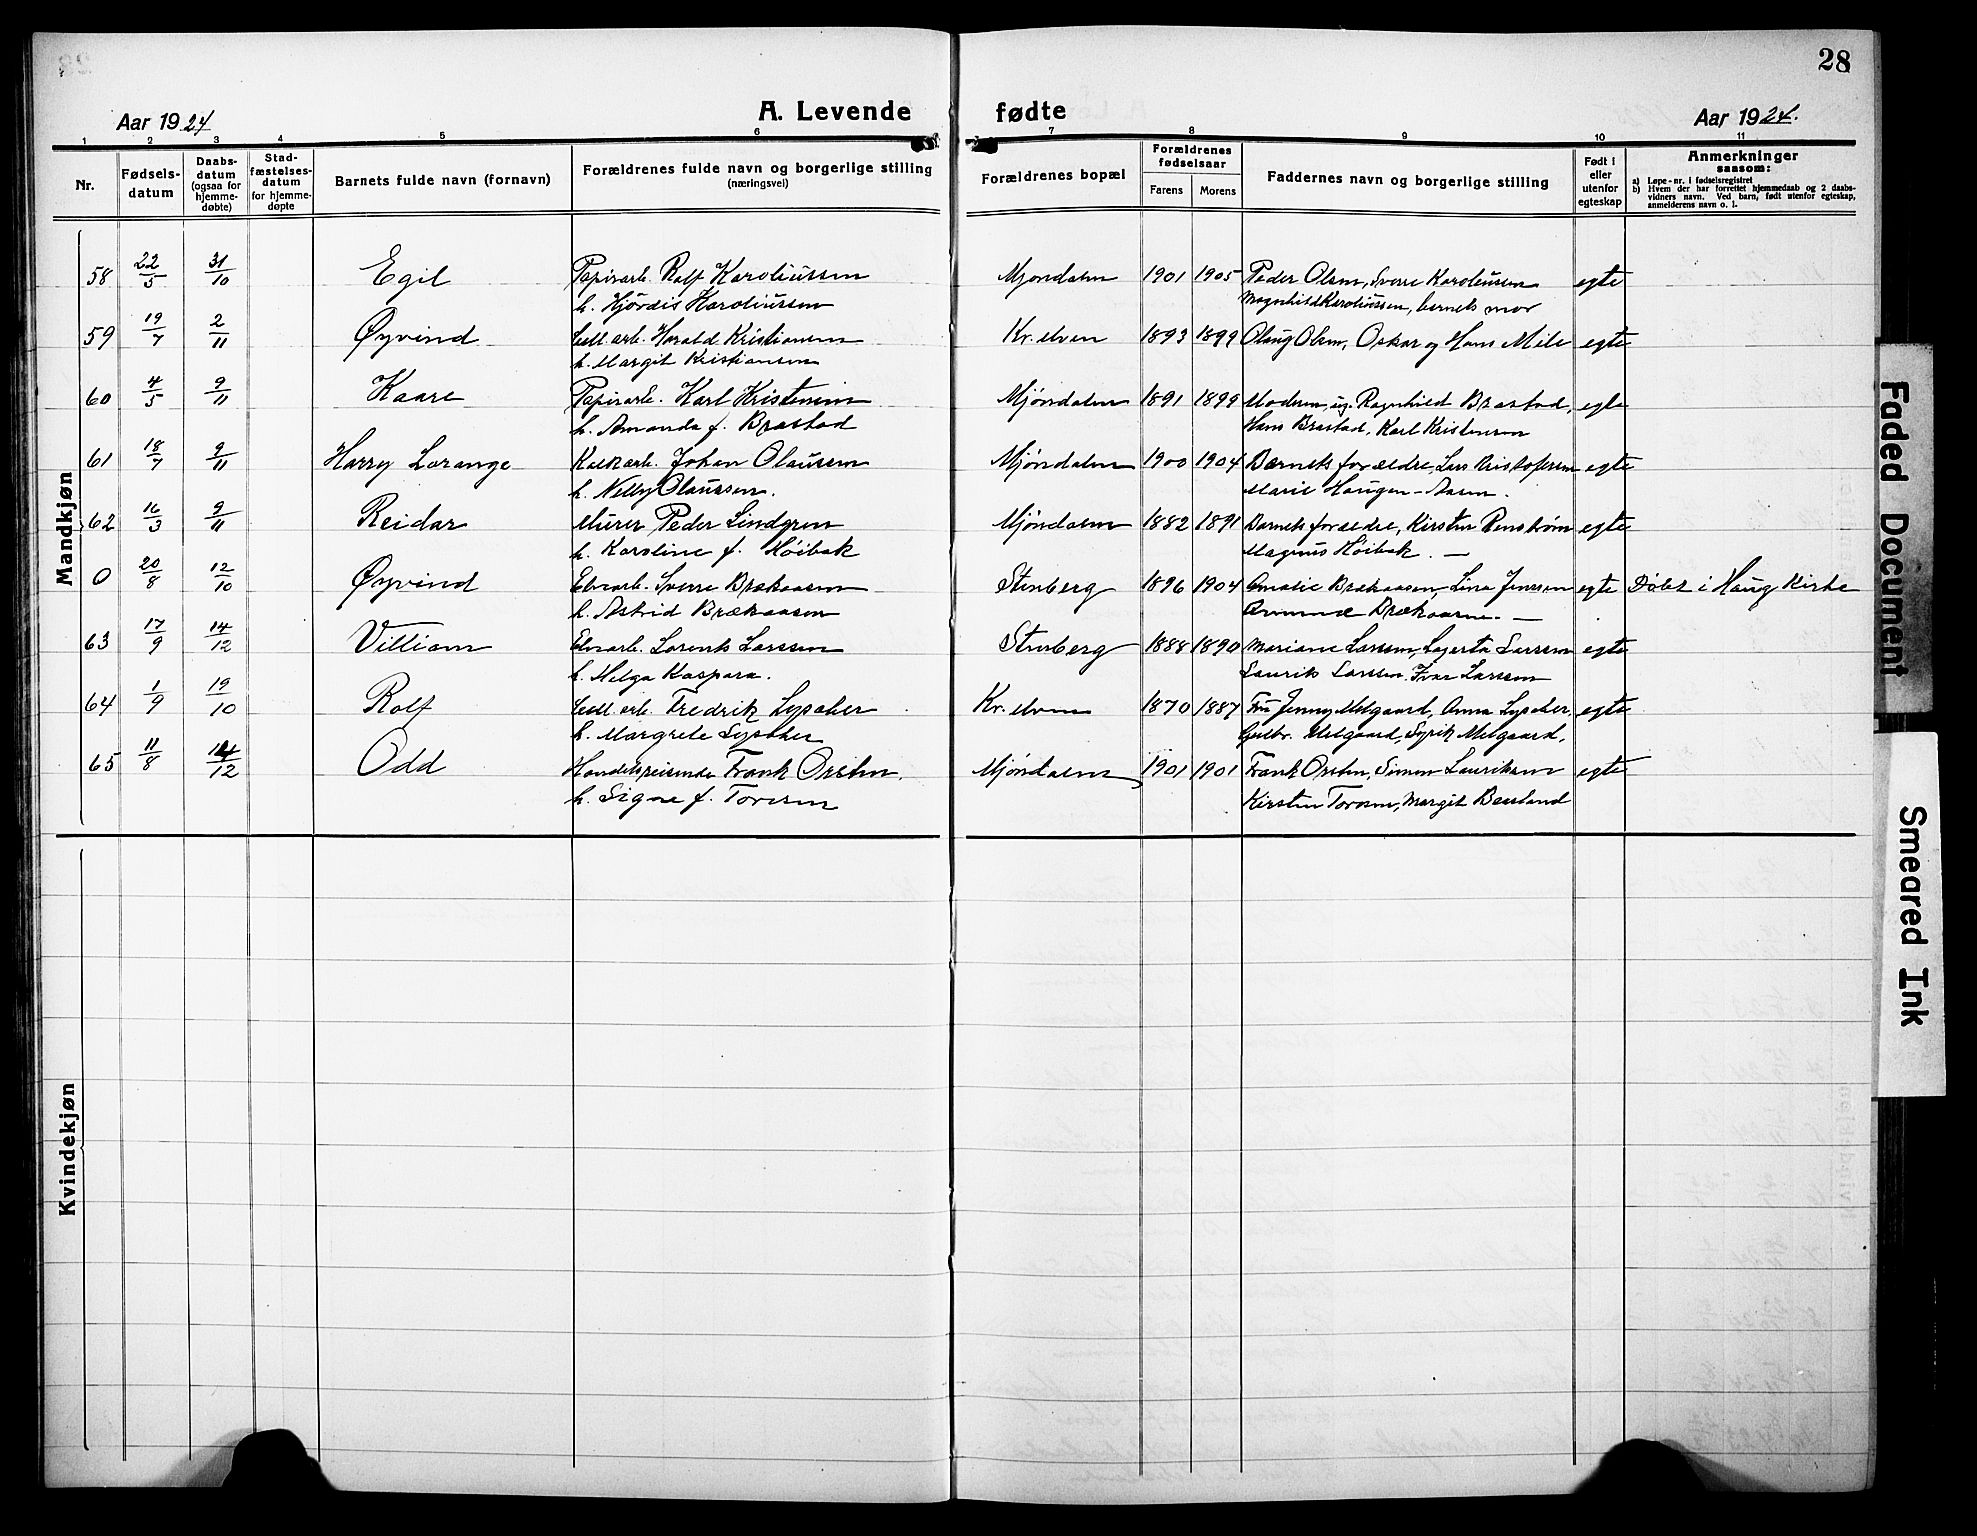 28
Aar 1924
A. Levende fødte
Aar 1924.
1 2 3 4 5 6 7 8 9 10 11
Nr.
Fødsels-
datum
Daabs-
datum
(ogsaa for
hjemme-
døbte)
Stad-
fæstelses-
datum
for hjemme-
døpte
Barnets fulde navn (fornavn)
Forældrenes fulde navn og borgerlige stilling
(næringsvei)
Forældrenes bopæl
Forældrenes
fødselsaar
Farens Morens
Faddernes navn og borgerlige stilling
Født i
eller
utenfor
egteskap
Anmerkninger
saasom:
a) Løpe-nr. i fødselsregistret
b) Hvem der har forrettet hjemmedaab og 2 daabs-
vidners navn. Ved barn, født utenfor egteskap,
anmelderens navn o. l.
Mandkjøn
58 22/5 31/10 Egil Papirarb. Rolf Karoliussen Mjøndalen 1901 1905 Peder Olsen, Sverre Karoliussen egte
h. Hjørdis Karoliussen Magnhild Karoliussen, barnets mor
59 19/7 2/11 Øyvind Cell. arb. Harald Kristiansen Kr. elven 1893 1899 Olaug Olsen, Oskar og Hans Mele egte
h. Margit Kristiansen
60 4/5 9/11 Kaare Papirarb. Karl Kristensen Mjøndalen 1891 1899 Moderen, ug. Ragnhild Brastad, egte
h. Amanda f. Brastad Hans Brastad, Karl Kristensen
61 18/7 9/11 Harry Lorange Kalkarb. Johan Olaussen Mjøndalen 1900 1904 Barnets forældre, Lars Kristofersen egte
h. Nelly Olaussen. Marie Haugen - Aasen.
62 16/3 9/11 Reidar Murer Peder Lindgren Mjøndalen 1882 1891 Barnets forældre, Kirsten Renstrøm egte
h. Karoline f. Høibak Magnus Høibak. —
0 20/8 12/10 Øyvind Elvearb. Sverre Brækaasen Stenberg 1896 1904 Amalie Brækaasen, Lina Jenssen egte Døbt i Haug Kirke
h. Astrid Brækaasen Brækaasen. —
63 17/9 14/12 Villiam Elvearb. Lorents Larssen Stenberg 1888 1890 Mariane Larssen, Lagerta Larssen egte
h. Helga Kaspara. Laurits Larssen. Ivar Larssen
64 1/9 19/10 Rolf Cell. arb. Fredrik Lysaker Kr. elven 1870 1887 Fru Jenny Melgaard, Anna Lysaker, egte
h. Margrete Lysaker Gulbr. Melgaard, Syrik Melgaard.
65 11/8 14/12 Odd Handelsreisende Frank Orsten. Mjøndalen 1901 1901 Frank Orsten, Simon Lauritsen egte
h. Signe f. Toresen Kirsten Toresen, Margit Baasland
Kvindekjøn
Faded Document
Smeared Ink